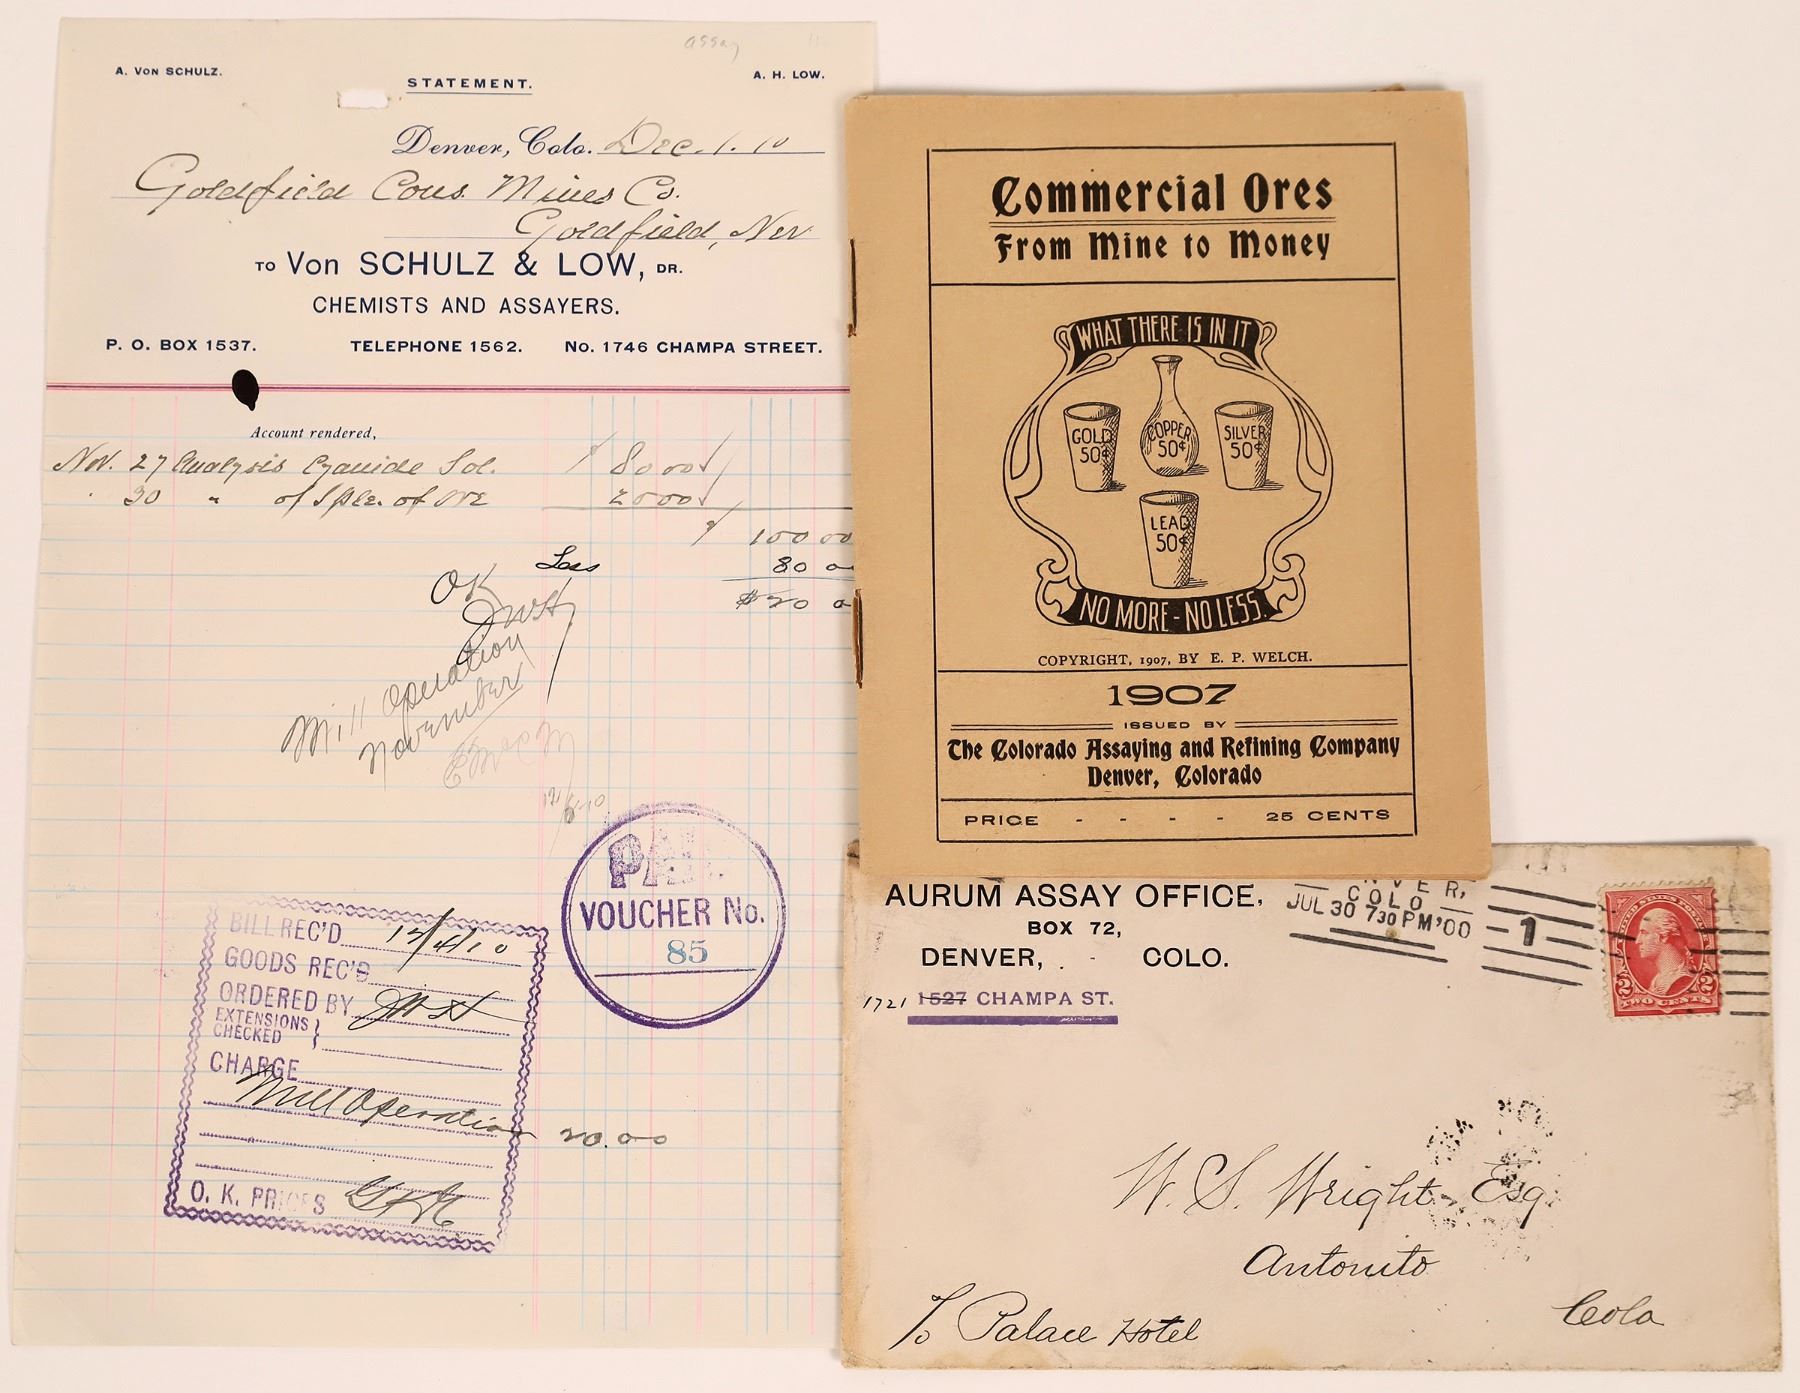 assay
A. VON SCHULZ.
STATEMENT.
A. H. LOW.
Denver, Colo. Dec. 1. 10
Goldfield Cons. Mines Co.
Goldfield, Nev
TO Von SCHULZ & LOW, DR.
CHEMISTS AND ASSAYERS.
P. O. BOX 1537. TELEPHONE 1562. No. 1746 CHAMPA STREET.
Account rendered,
Nov. 27 Analysis Cyanide Sol. 80 00
" 30 " of Sple. of Ore 20 00
100 00
Less 80 0
$20 0
OK
JWH
Mill Operation
November
12/6-10
PAID
VOUCHER No.
85
BILL REC'D 12/4/10
GOODS REC'D
ORDERED BY JWH
EXTENSIONS
CHECKED
CHARGE
Mill Operation 20.00
O. K. PRICES
Commercial Ores
From Mine to Money
WHAT THERE IS IN IT
GOLD
50¢
COPPER
50¢
SILVER
50¢
LEAD
50¢
NO MORE - NO LESS.
COPYRIGHT, 1907, BY E. P. WELCH.
1907
ISSUED BY
The Colorado Assaying and Refining Company
Denver, Colorado
PRICE - - - - 25 CENTS
AURUM ASSAY OFFICE,
BOX 72,
DENVER, - COLO.
1721 1527 CHAMPA ST.
NVER,
COLO
JUL 30 730 PM '00
1
UNITED STATES POSTAGE
2 2
TWO CENTS
W. S. Wright Esq.
Antonito
Colo
c/o Palace Hotel